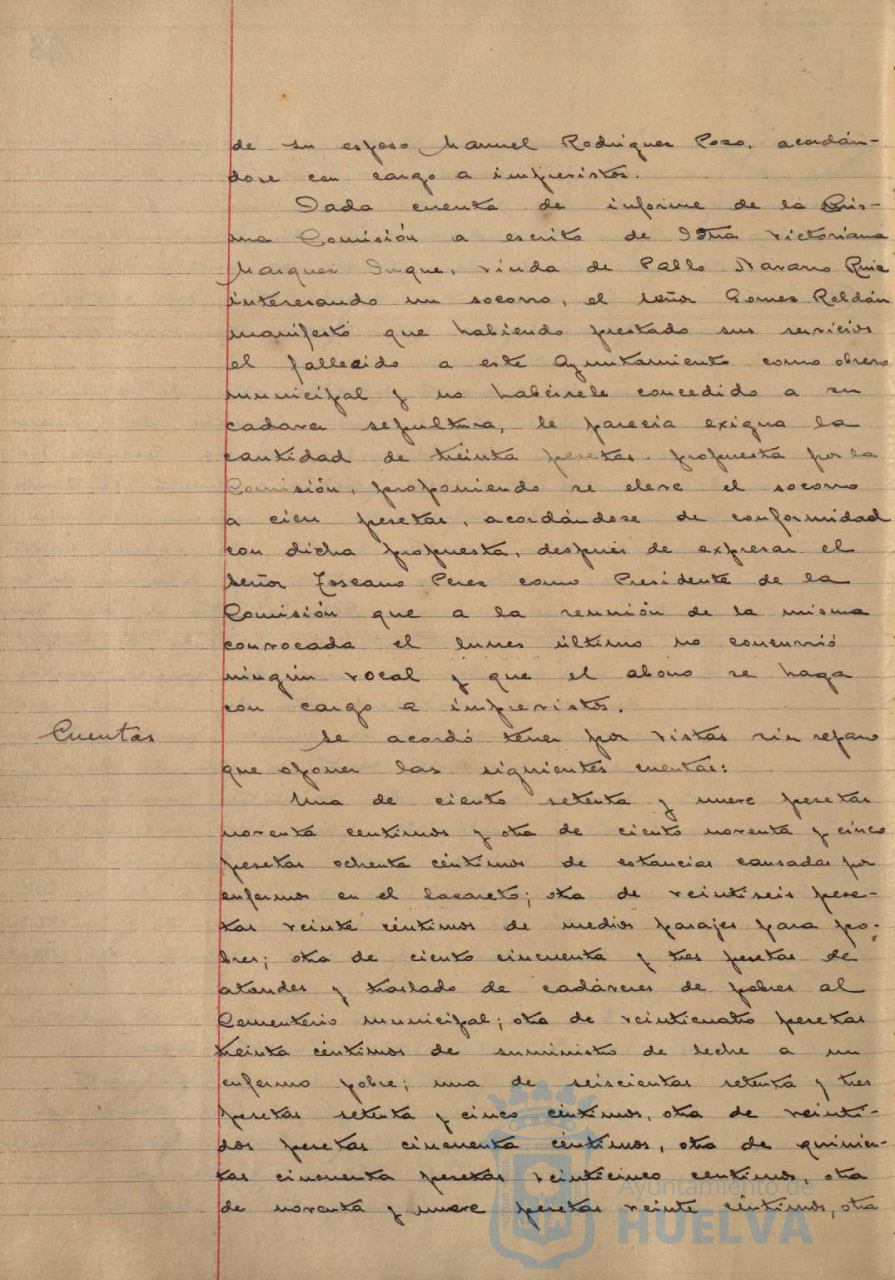 de su esposo Manuel Rodriguez Pozo, acordán-
dose con cargo a imprevistos.
Dada cuenta de informe de la mis-
ma Comisión a escrito de Dña Victoriana
Marquez Duque, viuda de Pablo Navarro Ruiz
interesando un socorro, el señor Gomez Roldán
manifestó que habiendo prestado sus servicios
el fallecido a este Ayuntamiento como obrero
municipal y no habérsele concedido a su
cadaver sepultura, le parecia exigua la
cantidad de treinta pesetas propuesta por la
Comisión, proponiendo se eleve el socorro
a cien pesetas, acordándose de conformidad
con dicha propuesta, después de expresar el
señor Toscano Perez como Presidente de la
Comisión que a la reunión de la misma
convocada el lunes último no concurrió
ningún vocal y que el abono se haga
con cargo a imprevistos.
Cuentas
Se acordó tener por vistas sin reparo
que oponer las siguientes cuentas:
Una de ciento setenta y nueve pesetas
noventa centimos y otra de ciento noventa y cinco
pesetas ochenta céntimos de estancias causadas por
enfermos en el Lazareto; otra de veintiseis pese-
tas veinte céntimos de medios pasajes para po-
bres; otra de ciento cincuenta y tres pesetas de
ataudes y traslado de cadáveres de pobres al
Cementerio municipal; otra de veinticuatro pesetas
treinta céntimos de suministro de leche a un
enfermo pobre; una de seiscientas setenta y tres
pesetas setenta y cinco céntimos, otra de veinti-
dos pesetas cincuenta céntimos, otra de quinien-
tas cincuenta pesetas veinticinco centimos, otra
de noventa y nueve pesetas veinte céntimos, otra
Ayuntamiento de
HUELVA